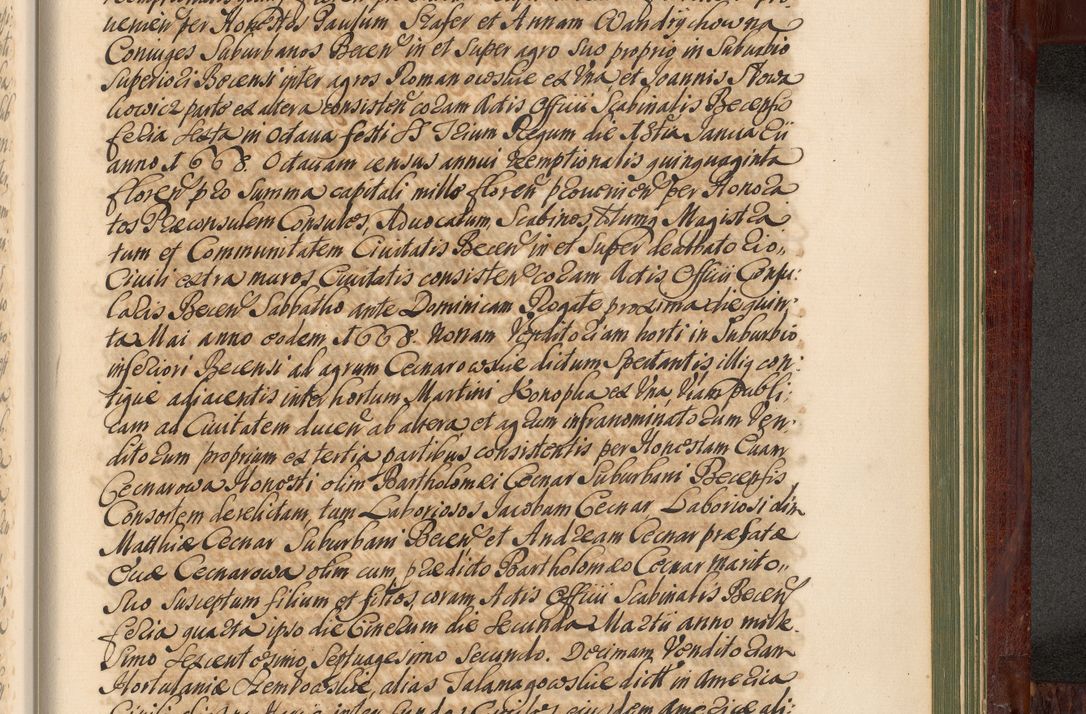 venien per Honestos Paulum Szafer et Annam Wandrychowna
Coniuges Suburbanos Becen in et Super agro suo proprio in Suburbio
Superiori Becensi inter agros Romanowskie ex una et Joannis Nowa
kowicz parte ex altera consisten coram Actis Officii Scabinalis Becensis
feria sexta in Octava festi SS Trium Regum die 13tia Januarii
anno 1668. Octavam census annui reemptionalis quinquaginta
floren pro summa capitali mille floren provenien per Honora
tos Proconsulem Consules, Advocatum, Scabinos, totumq Magistra
tum et Communitatem Civitatis Becen in et Super Theatrato
Civili extra muros Civitatis consisten coram Actis Officii Consu:
laris Becen Sabbatho ante Dominicam Rogate proxima die quin:
ta Mai anno eodem 1668. Nonam Venditoriam horti in Suburbio
inferiori Becensi ad agrum Cecnarowskie dictum Spectantis, illiq con:
tigue adjacentis inter hortum Martini Konopka ex una viam publi:
cam ad Civitatem ducen ab altera et agrum infranominatorum Ven:
ditorum proprium ex tertia partibus consistentis per Honestam
Cecnarowa Honesti olim Bartholomei Cecnar Suburbani Becensis
Consortem derelictam, tum Laboriosos Jacobum Cecnar Laboriosi olim
Matthiæ Cecnar Suburbani Becen et Andream Cecnar præfatæ
Evæ Cecnarowa olim cum prædicto Bartholomæo Cecnar marito
Suo susceptum filium et filios, coram Actis Officii Scabinalis Becen
feria quarta ipso die Cinerum die secunda Martii anno mille
Simo Sexcentesimo Septuagesimo Secundo. Decimam Venditoriam
Hortulaniæ alias Talamagowskie dictæ in America